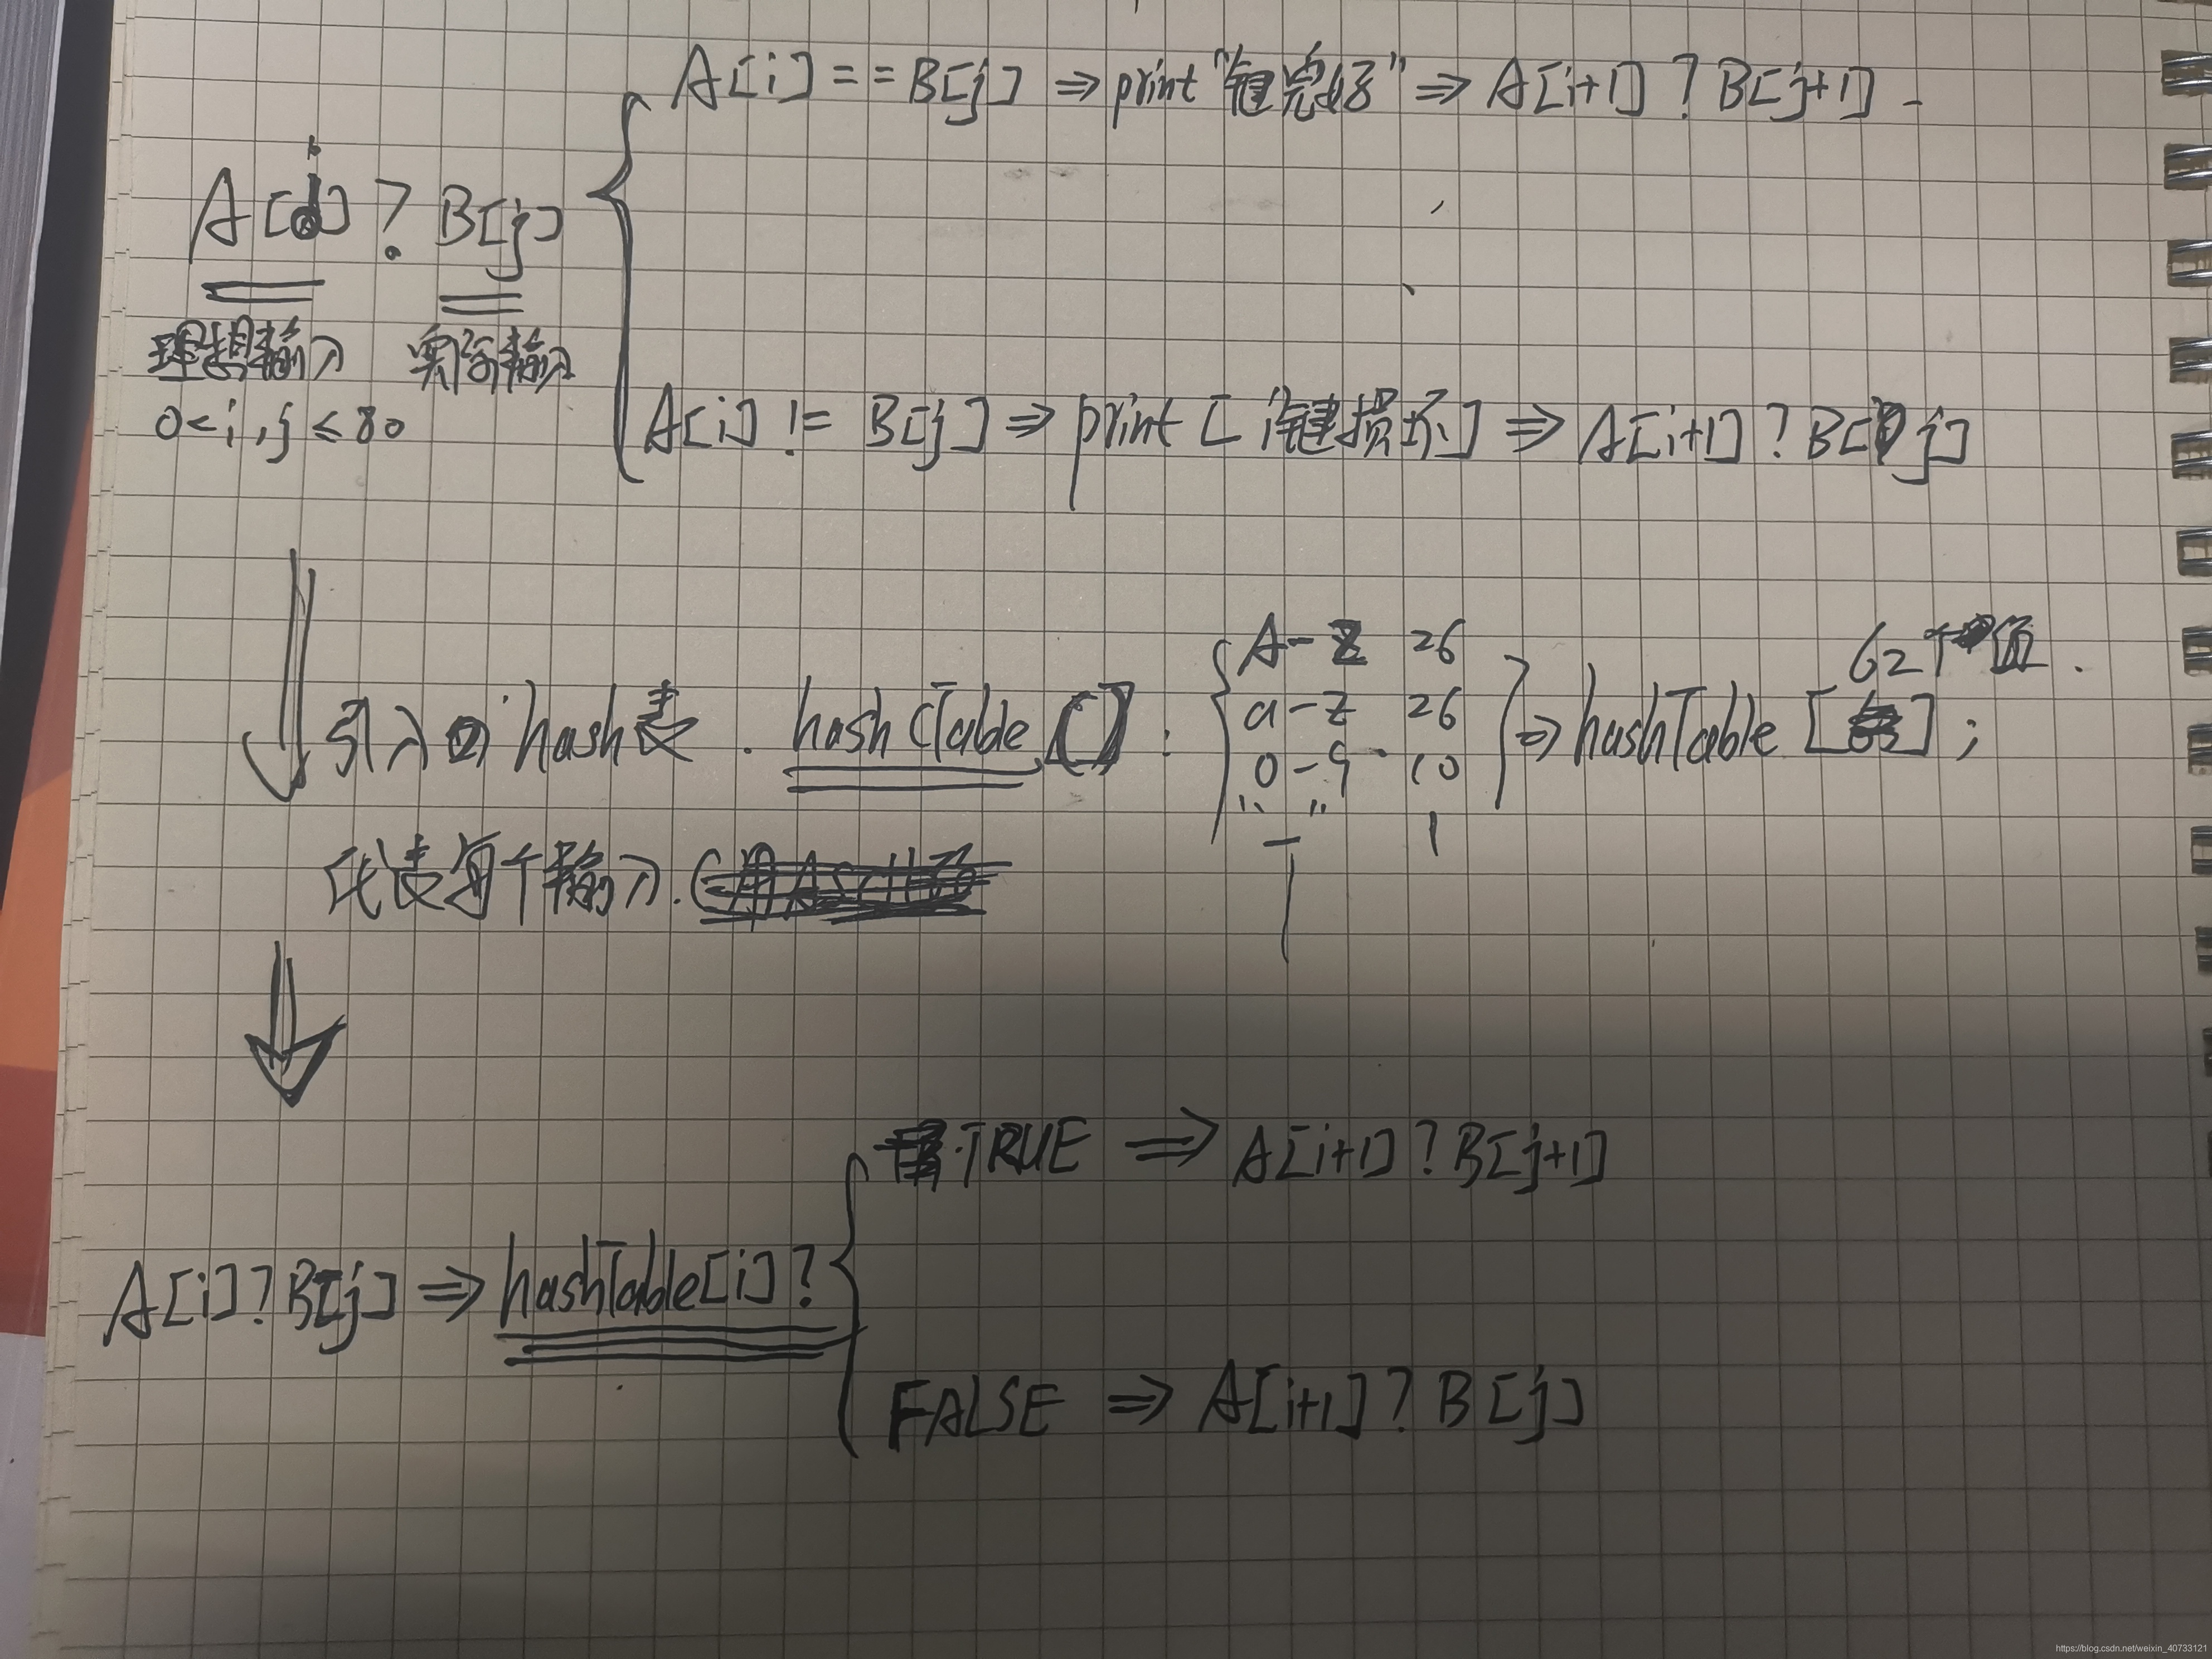 A[i] == B[j] ⇒ print "键完好" ⇒ A[i+1] ? B[j+1]
A[i] ? B[j]
理想输入 实际输入
0<i,j≤80
A[i] != B[j] ⇒ print [ i键损坏] ⇒ A[i+1] ? B[j]
A-Z 26
62个值.
a-z 26
引入 hash表. hashTable : ⇒ hashTable [ ] ;
0-9 10
" "
_ 1
代表每个输入.
TRUE ⇒ A[i+1] ? B[j+1]
A[i] ? B[j] ⇒ hashTable[i] ?
FALSE ⇒ A[i+1] ? B[j]
https://blog.csdn.net/weixin_40733121